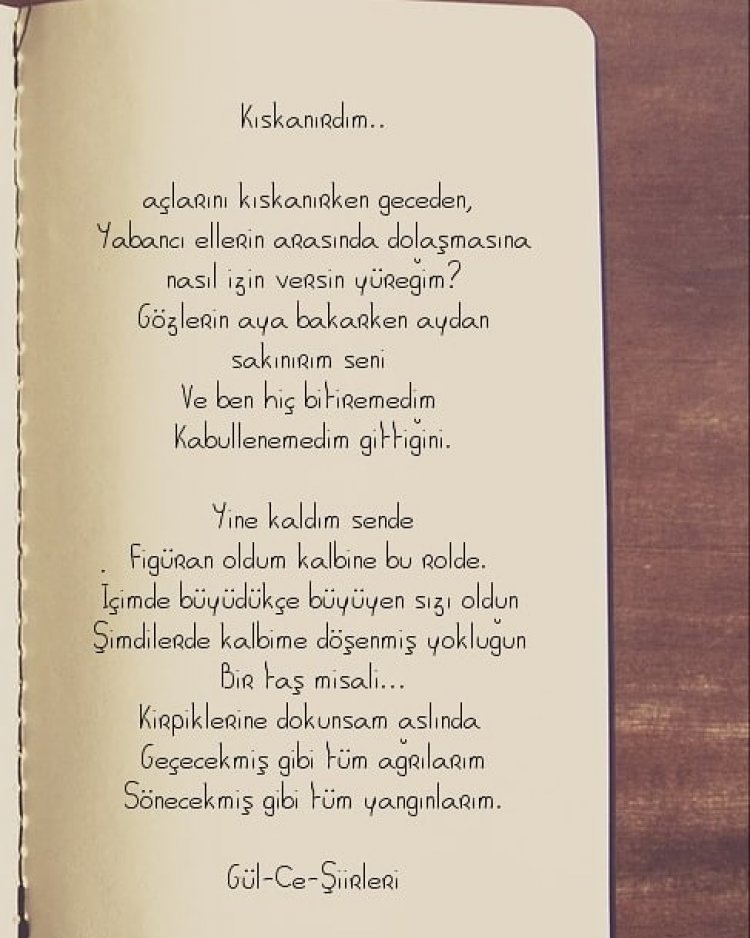 Kıskanırdım..
açlarını kıskanırken geceden,
Yabancı ellerin arasında dolaşmasına
nasıl izin versin yüreğim?
Gözlerin aya bakarken aydan
sakınırım seni
Ve ben hiç bitiremedim
Kabullenemedim gittiğini.
Yine kaldım sende
Figüran oldum kalbine bu rolde.
İçimde büyüdükçe büyüyen sızı oldun
Şimdilerde kalbime döşenmiş yokluğun
Bir taş misali...
Kirpiklerine dokunsam aslında
Geçecekmiş gibi tüm ağrılarım
Sönecekmiş gibi tüm yangınlarım.
Gül-Ce-Şiirleri